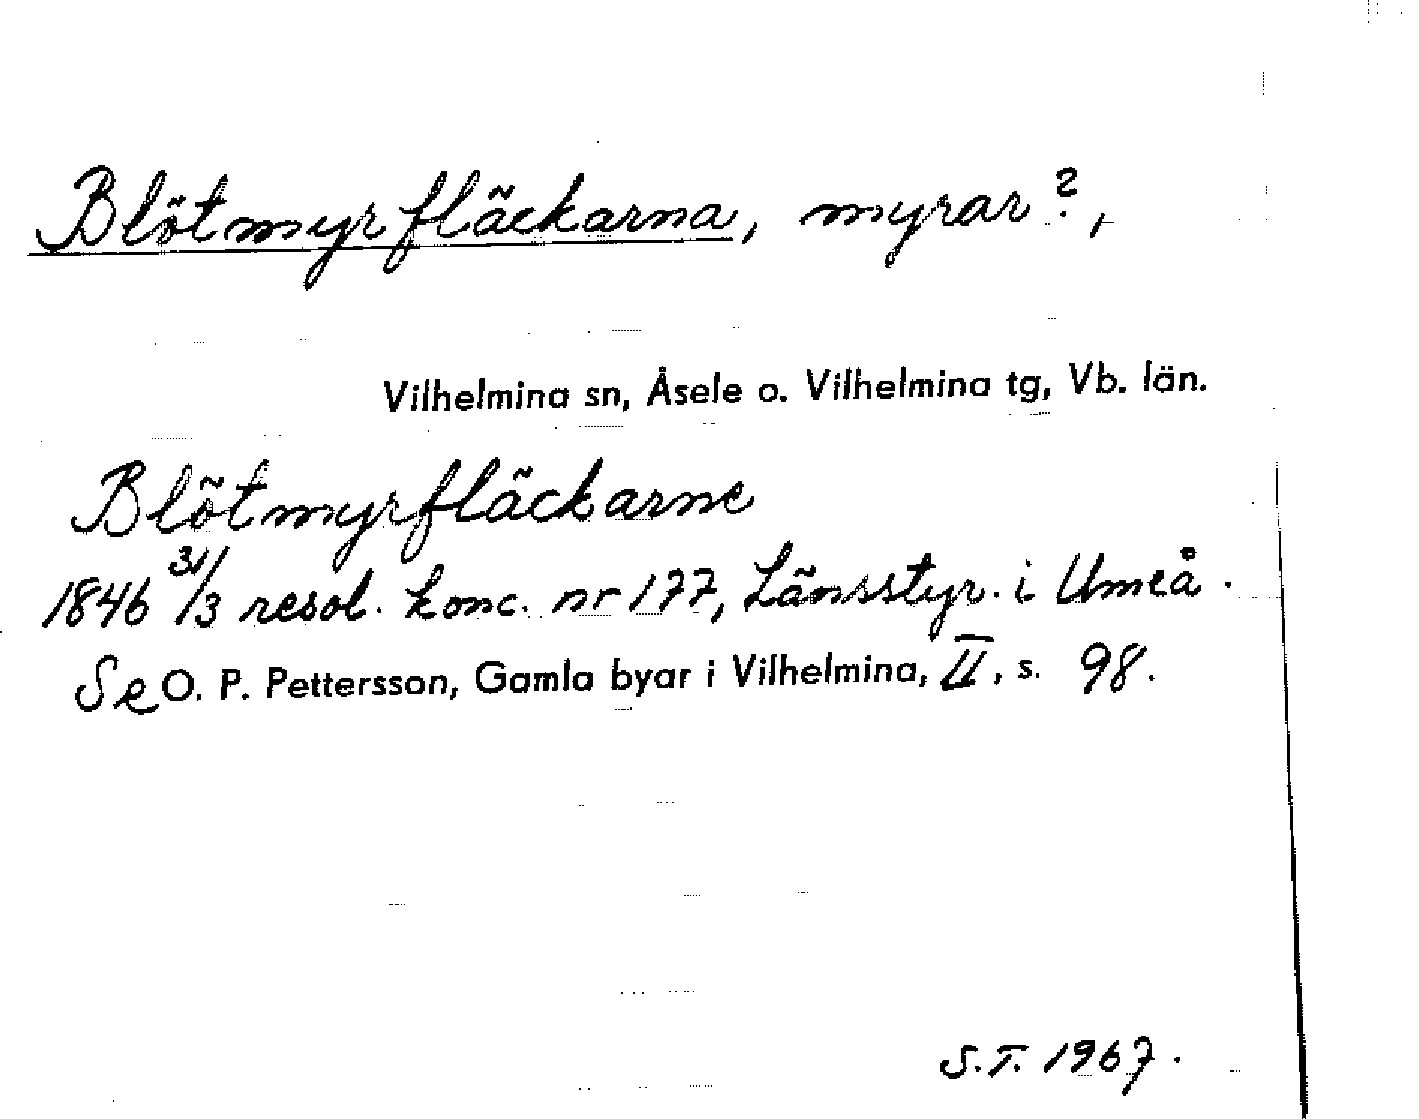 Blötmyrfläckarna, myrar?,
Vilhelmina sn, Åsele o. Vilhelmina tg, Vb. län.
Blötmyrfläckarne
1846 31/3 resol. konc. nr 177, Länsstyr. i Umeå.
Se O. P. Pettersson, Gamla byar i Vilhelmina, II, s. 98.
S.T. 1967.